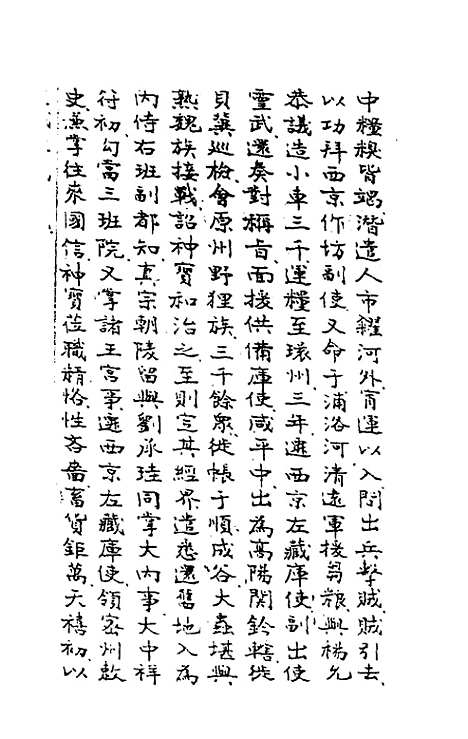 中糧糗皆竭潛遣人市糴河外宵運以入間出兵擊賊賊引去
以功拜西京作坊副使又命于浦洛河清遠軍援芻糧與楊允
恭議造小車三千運糧至環州三年遷西京左藏庫使副出使
靈武還奏對稱旨面授供備庫使咸平中出為高陽関鈐轄徙
貝冀巡檢會原州野狸族三千餘衆徙帳于順成谷大蟲堪與
熟魏族接戰詔神寳和治之至則定其經界遣悉還舊地入為
内侍右班副都知真宗朝陵留與劉承珪同掌大内事大中祥
符初勾當三班院又掌諸王宫事遷西京左藏庫使領密州敎
史兼掌往來國信神寳莅職精恪性吝嗇畜貨鉅萬天禧初以